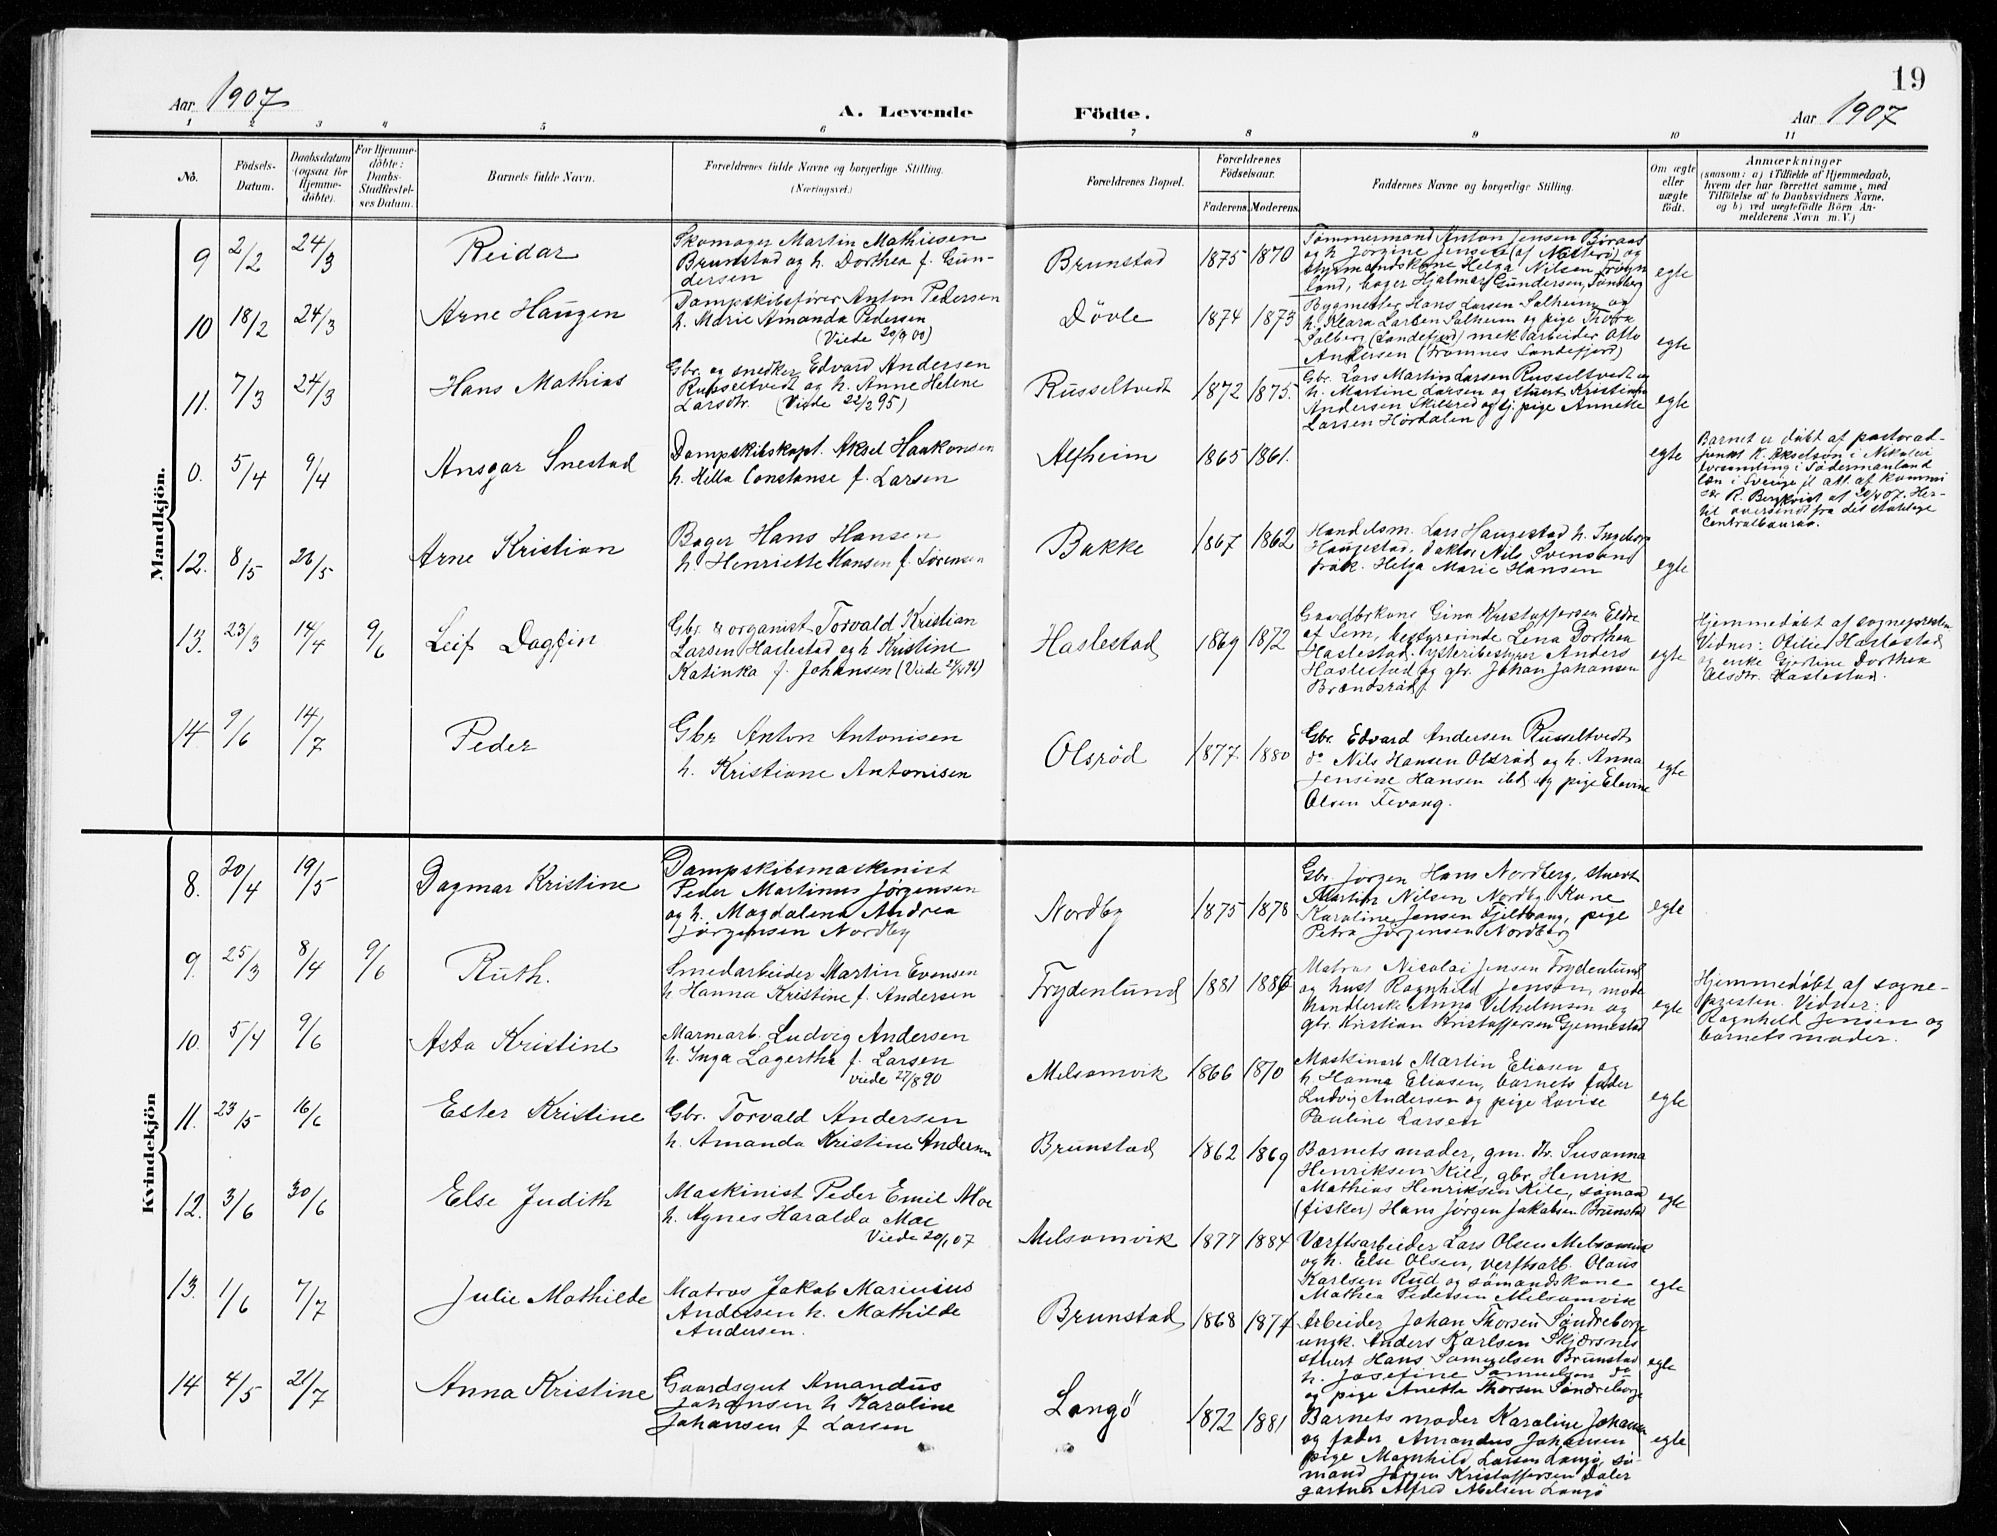 19
Aar 1907
A. Levende Födte.
Aar 1907
1 2 3 4 5 6 7 8 9 10 11
No.
Födsels-
Datum.
Daabsdatum
(ogsaa for
Hjemme-
döbte).
For Hjemme-
döbte:
Daabs-
Stadfæstel-
ses Datum.
Barnets fulde Navn.
Forældrenes fulde Navne og borgerlige Stilling.
(Næringsvei.)
Forældrenes Bopæl.
Forældrenes
Födselsaar.
Faderens. Moderens.
Faddernes Navne og borgerlige Stilling.
Om ægte
eller
uægte
födt.
Anmærkninger
(saasom: a) i Tilfælde af Hjemmedaab,
hvem der har forrettet samme, med
Tilföielse af to Daabsvidners Navne,
og b) ved uægtefödte Börn An-
melderens Navn m. V.)
Mandkjön.
9 2/2 24/3 Reidar
Skomager Martin Mathiesen
Brunstad og h. Dorthea f. Gun-
dersen
Brunstad 1875 1870
Tømmermand Anton Jensen
og h. Jørgine Jensen (af Nøtterø) og
styrmandskone Helga Nilsen
land, bager Hjalmar Gundersen, Tønsberg
egte
10 18/2 24/3 Arne Haugen
Dampskibsfører Anton Pedersen
h. Marie Amanda Pedersen
(Viede 20/9 00)
Døvle 1874 1873
Bygmester Hans Larsen Solheim og
h. Klara Larsen Solheim og pige Thora
Solberg (Sandefjord) mek arbeider Otto
Andersen (Framnes Sandefjord)
egte
11. 7/3 24/3 Hans Mathias
Gbr. og snedker Edvard Andersen
Russeltvedt og h. Anne Helene
Larsdtr. (Viede 22/2 95)
Russeltvedt 1872 1875.
Gbr. Lars Martin Larsen Russeltvedt og
h. Martine Larsen og stuert Kristian
Andersen og tj. pige Annette
Larsen Hørdalen
egte
0. 5/4 9/4 Ansgar Snestad
Dampskibskapt. Aksel Haakonsen
h. Hilla Constanse f. Larsen
Alfheim 1865 1861.
egte
Barnet er døbt af pastorad-
junkt K. Akselson i Nikolai
forsamling i Södermanland
læn i Sverige jl att. af kommi
sær R. Bergkvist af 20/4 07. Her-
til oversendt fra det statistiske
Centralbureau.
12. 8/5 26/5 Arne Kristian
Bager Hans Hansen
h. Henriette Hansen f. Sørensen
Bakke 1867 1862
Handelsm. Lars Haugestad h. Ingeborg
Haugestad, doktor Nils Svensens
frøk. Helga Marie Hansen
egte
13. 23/3 14/4 9/6 Leif Dagfin
Gbr. & organist Torvald Kristian
Larsen Haslestad og h. Kristine
Katinka f. Johansen (Viede 24/4 96)
Haslestad 1869 1872
Gaardbrkone Gina Kristoffersen Eldre
af Sem, bestyrerinde Lena Dorthea
Haslestad. Bestyrer Anders
Haslestad og gbr. Johan Johansen
Brændsrød
egte
Hjemmedøbt af sognepresten
Vidner: Ofilie Haslestad
og enke Gjertine Dorthea
Olsdtr. Haslestad.
14. 9/6 14/7 Peder
Gbr Anton Antonisen
h. Kristiane Antonisen
Olsrød 1877. 1880
Gbr. Edvard Andersen Russeltvedt
do Nils Hansen Olsrød og h. Anna
Jensine Hansen ibd og pige Elevine
Olsen Fevang.
egte
Kvindekjön
8. 20/4 19/5 Dagmar Kristine
Dampskibsmaskinist
Peder Martinus Jørgensen
og h. Magdalena Andrea
Jørgensen Nordby
Nordby 1875 1878
Gbr. Jørgen Hans Nordberg, stuert
Martin Nilsen Nordby Kone
Karoline Jensen Fjeldvang, pige
Petra Jørgensen Nordberg
egte
9. 25/3 8/4 9/6 Ruth.
Smedarbeider Martin Evensen
h Hanna Kristine f. Andersen
Frydenlund 1881 1886
Matros Nicolai Jensen Frydenlund
og hust Ragnhild Jensen, mode
handlerske Anna Vilhelmsen og
gbr. Kristian Kristoffersen Gjennestad
egte
Hjemmedøbt af sogne-
presten. Vidner:
Ragnhild Jensen og
barnets moder.
10. 5/4 9/6 Asta Kristine
Marmorarb. Ludvig Andersen
h. Inga Lagertha f. Larsen
viede 27/8 90
Melsomvik 1866 1870
Maskinarb Martin Eliasen og
h Hanna Eliasen, barnets fader
Ludvig Andersen og pige Lovise
Pauline Larsen
egte
11. 23/5 16/6 Ester Kristine
Gbr. Torvald Andersen
h. Amanda Kristine Andersen
Brunstad 1862 1869
Barnets moder, gm. Susanna
Henriksen Kile, gbr. Henrik
Mathias Henriksen Kile, sømand
(fisker) Hans Jørgen Jakobsen Brunstad
egte
12. 3/6 30/6 Else Judith
Maskinist Peder Emil Moe
h. Agnes Haralda Moe
Viede 20/1 07
Melsomvik 1877 1884
Værftsarbeider Lars Olsen Melsomvik
og h. Else Olsen, verftsarb. Olaus
Karlsen Rud og sømandskone
Mathea Pedersen Melsomvik
egte
13. 1/6 7/7 Julie Mathilde
Matros Jakob Marinius
Andersen h. Mathilde
Andersen.
Brunstad 1868 1877
Arbeider Johan Thorsen Søndreborge
ungk. Anders Karlsen Skjærsnes
stuert Hans Samuelsen Brunstad
h. Josefine Samuelsen do
og pige Anette Thorsen Søndreborge
egte
14 4/5 21/7 Anna Kristine
Gaardsgut Amandus
Johansen h Karoline
Johansen f Larsen
Langö 1872 1881
Barnets moder Karoline Johansen
og fader Amandus Johansen
pige Magnhild Larsen Langö, sø-
mand Jørgen Kristoffersen Daler
gartner Alfred Abelsen Langö
egte